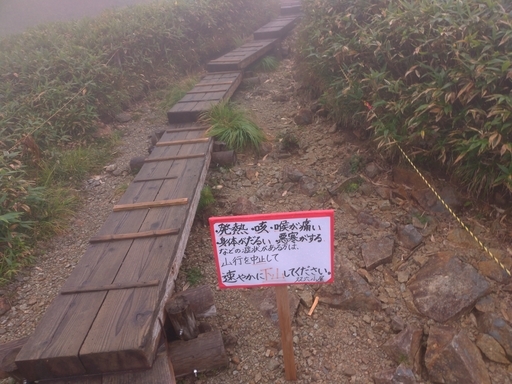 発熱・咳・喉が痛い
身体がだるい、悪寒がする
などの症状がある方は、
山行を中止して
速やかに下山してください。